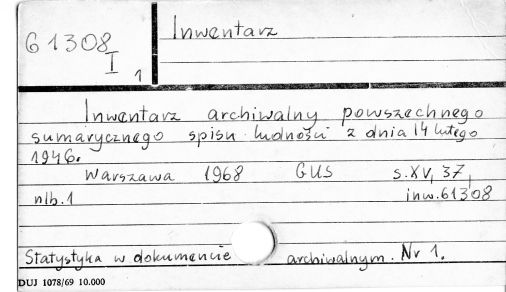 61308
I
1
Inwentarz
Inwentarz archiwalny powszechnego
sumarycznego spisu ludności z dnia 14 lutego
1946.
Warszawa 1968 GUS s.XV, 37,
nlb.1 inw.61308
Statystyka w dokumencie archiwalnym. Nr 1.
DUJ 1078/69 10.000